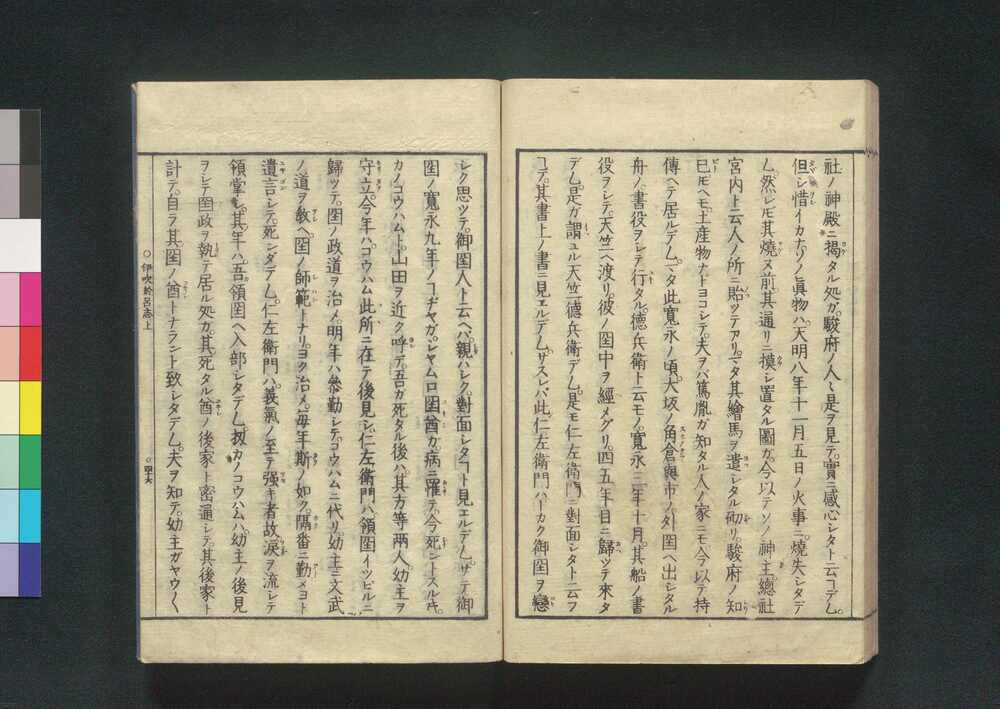 社ノ神殿ニ揭タル処ガ駿府ノ人〻是ヲ見テ。實ニ感心シタト云ヿデム。
但シ惜イカナソノ眞物ハ。天明八年十一月五日ノ火事ニ。燒失シタデ
ム。然レモ其燒ヌ前其通リニ摸シ置タル圖ガ。今以テソノ神主總社
宮内ト云人ノ所ニ貽ツテアリ。マタ其繪馬ヲ遣シタル砌リ。駿府ノ知
巳モヘモ土産物ナドヨコシテ。夫ヲバ篤胤ガ知タル人ノ家ニモ今以テ持
傳ヘテ居ルデム。マタ此寛永ノ頃大坂ノ角倉與市ノ。外囯ヘ出シタル
舟ノ書役ヲシテ行タル。德兵衛ト云モノ。寛永三年十月。其船ノ書
役ヲシテ。天竺ヘ渡リ。彼ノ囯中ヲ經メグリ。四五年目ニ歸ツテ來タ
デム。是ガ謂ユル天竺德兵衛デム。是モ仁左衛門ニ對面シタト云フ
ヿデ。其書上ノ書ニ見エルデム。サスレバ此仁左衛門ハ。カク御囯ヲ戀
シク思ツテ。御囯人ト云ヘバ。親ハシク。對面シタヿト見エルデム。サテ御
囯ノ寛永九年ノコヂヤガ。シヤムロ囯酋ガ。病ニ罹テ。今死ントスルキ。
カノコウハムト。山田ヲ近ク呼デ。吾ガ死タル後ハ。其方等兩人幼主ヲ
守立。今年ハ。コウハム此所ニ在テ後見シ。仁左衛門ハ。領囯イツビルニ
歸ツテ。囯ノ政道ヲ治メ。明年ハ參勤シテ。コウハムニ代リ。幼主ニ文武
ノ道ヲ教ヘ。囯ノ師範トナリ。ヨク治メ。毎年斯ノ如ク。隔番ニ勤メヨト
遺言シテ。死シダデム。仁左衛門ハ。義氣ノ至テ强キ者故。淚ヲ流シテ
領掌シ。其年ハ。吾領囯ヘ入部シタデム。扨カノコウハムハ。幼主ノ後見
ヲシテ囯政ヲ執テ居ル処ガ。其死タル酋ノ後家ト密通シテ。其後家ト
計テ。自ラ其囯ノ酋トナラント致シタデム。夫ヲ知テ。幼主ガヤウ〱
○伊吹於呂志上
○四十六